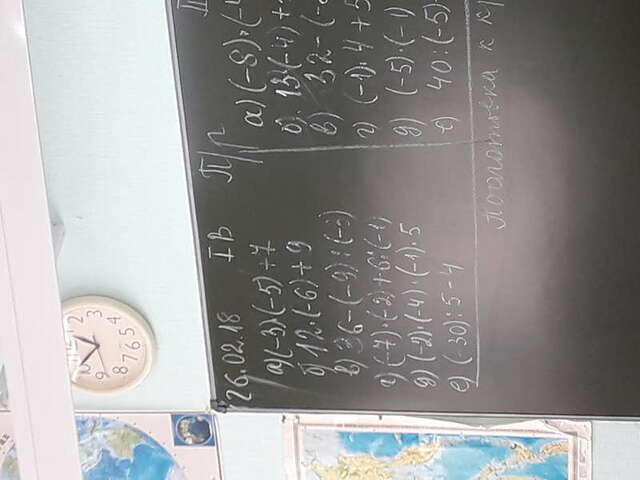 10 11 12 1 2 3 4 5 6 7 8 9
26.02.18 I В П/р
а) (-3)·(-5)+7
б) 12·(-6)+9
в) 36-(-9):(-3)
г) (-7)·(-2)+6:(-1)
д) (-2)·(-4)·(-1)·5
е) (-30):5-4
а) (-8)·(-
б) 13·(-4)+
в) 32-(-
г) (-1)·4+5
д) (-5)·(-1)
е) 40:(-5)
Подготовка к к